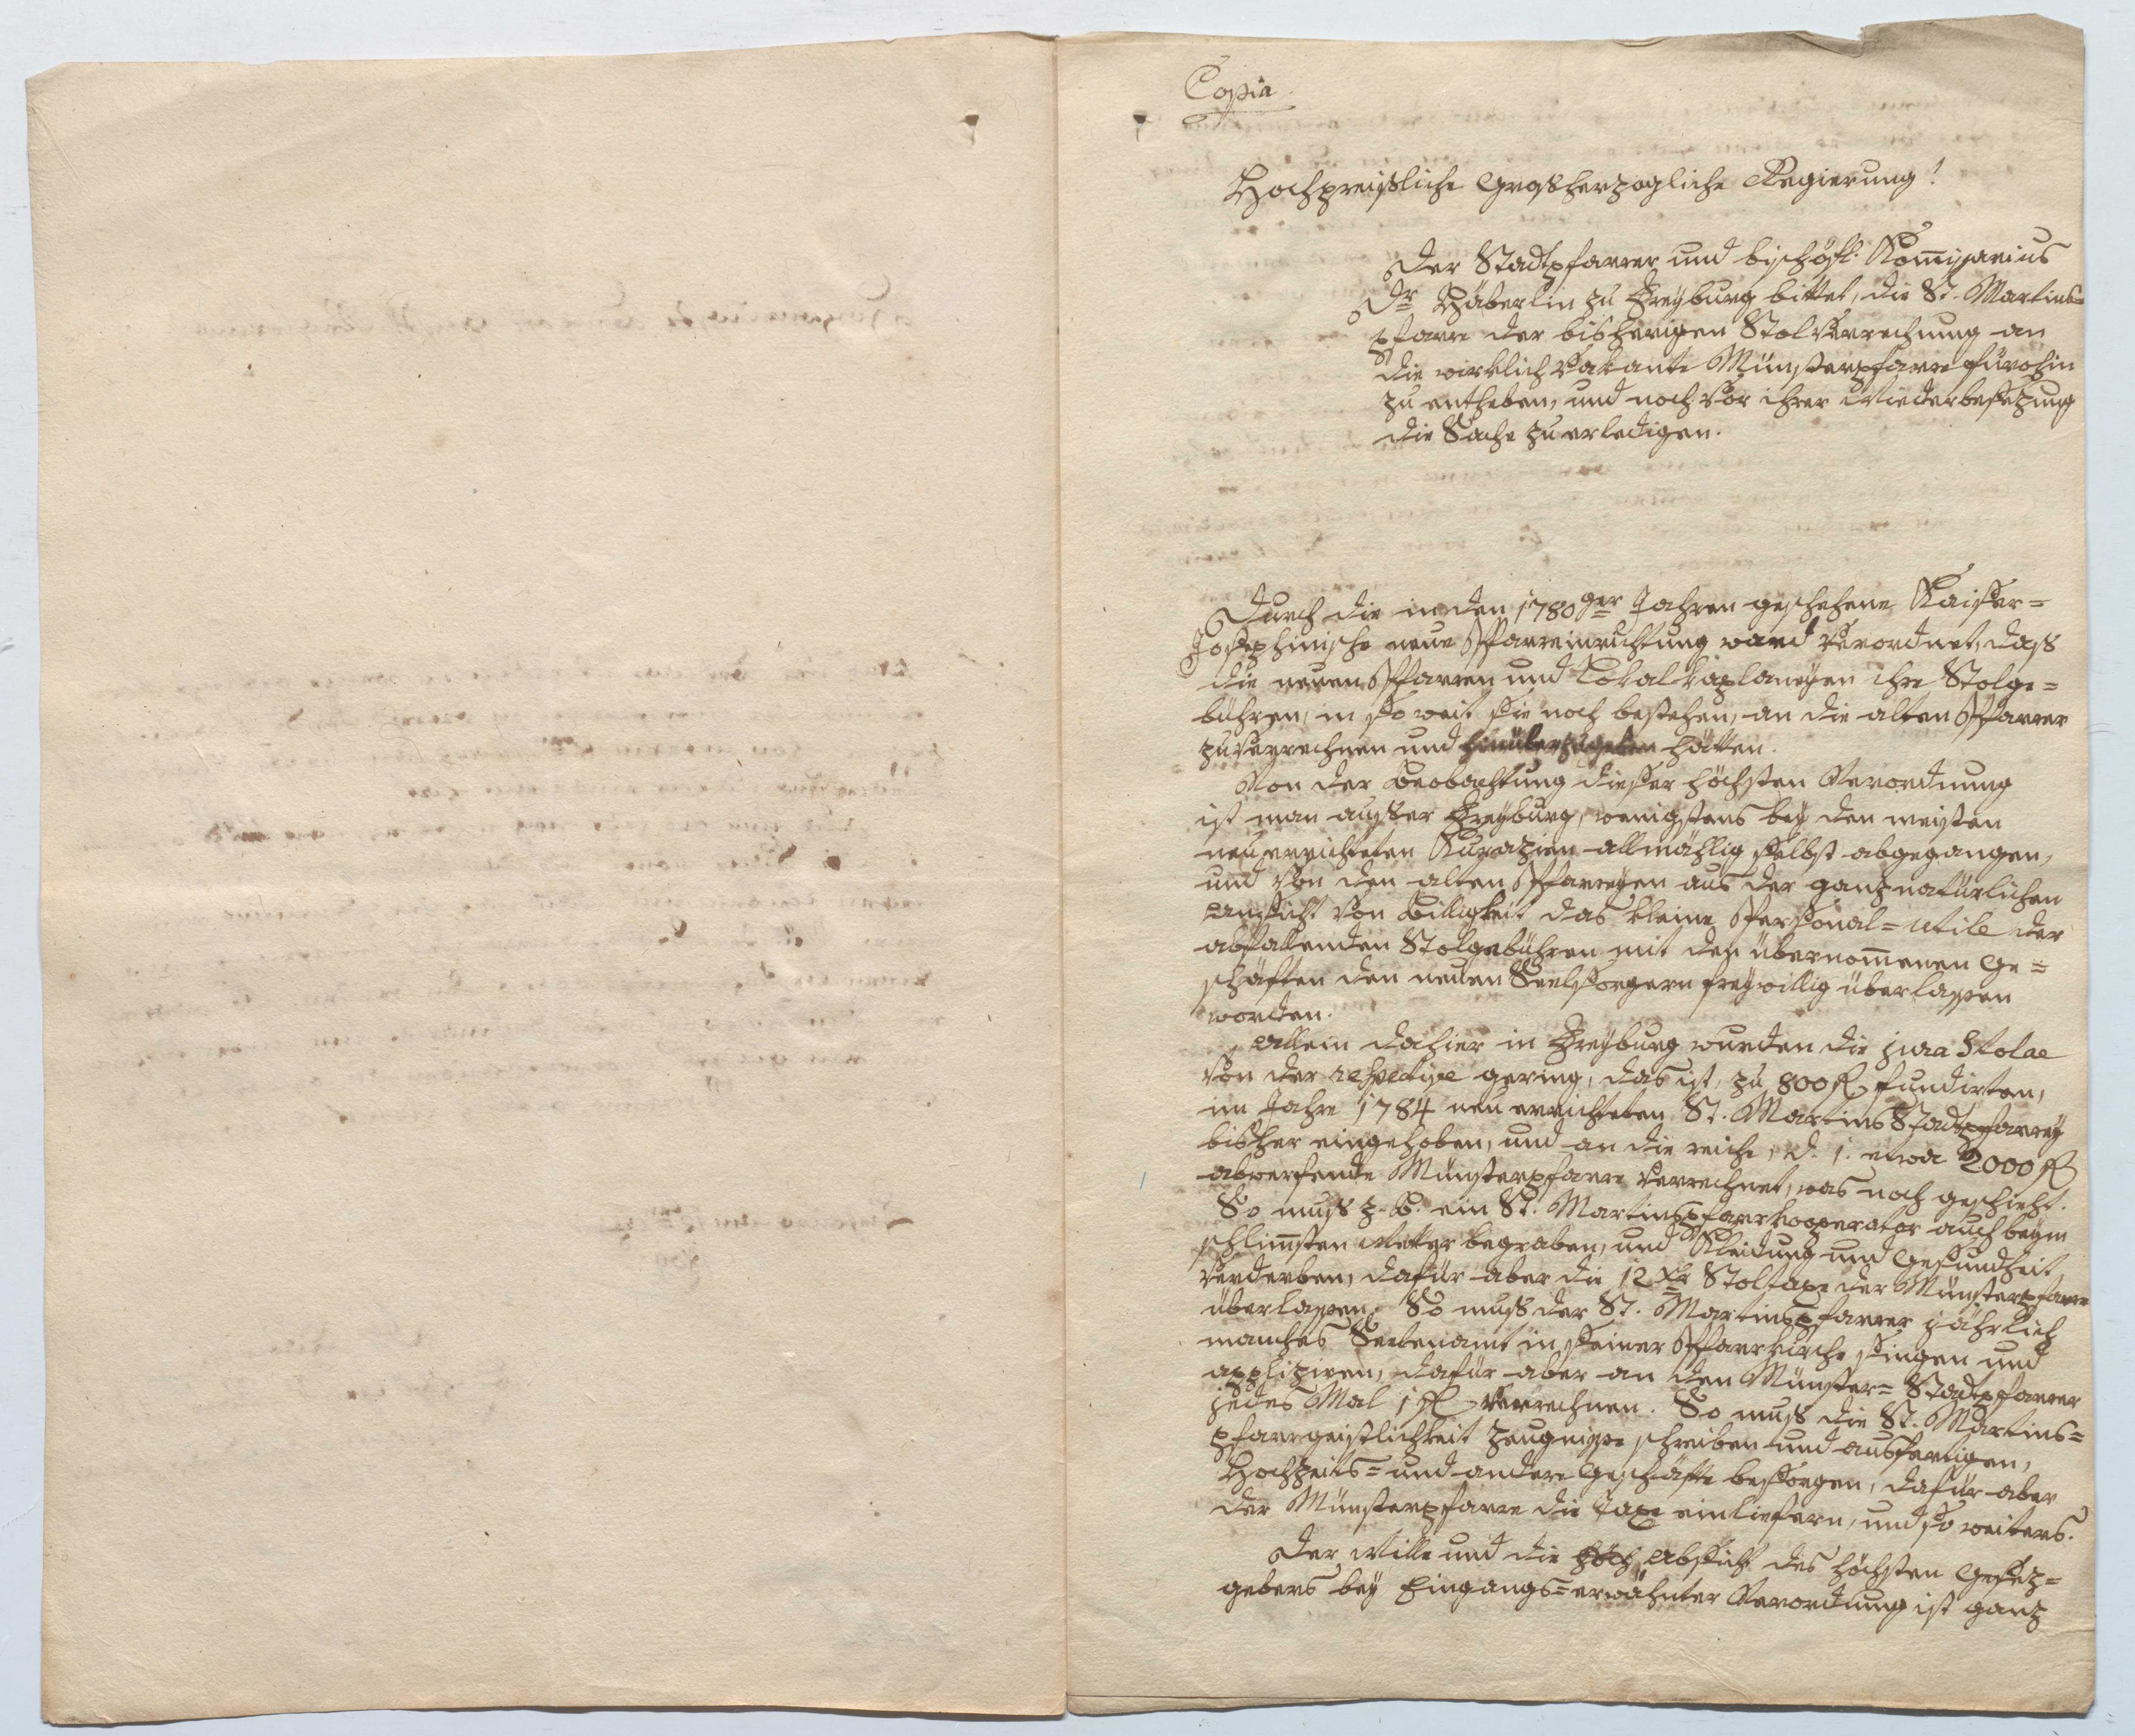 Copia.
Hochpreißliche Großherzogliche Regierung!
Der Stadtpfarrer und bischöfl. Kom̄issarius
Dr Häberlin zu Freyburg bittet, die St. Martins=
pfarre der bisherigen Stolverrechnung an
die wirklich vakante Münsterpfarre fürohin
zu entheben, und noch vor ihrer Wiederbesezung
die Sache zu erledigen.
Durch die in den 1780ger Jahren geschehene Kaiser=
Josephinische neue Pfarreinrichtung ward verordnet, daß
die neuen Pfarren und Lokalkaplaneyen ihre Stolge=
bühren, in so weit sie noch bestehen, an die alten Pfarrer
zu verrechnen und hinüberzugeben hätten.
Von der Beobachtung dieser höchsten Verordnung
ist man ausser Freyburg, wenigstens bey den meisten
neu errichteten Kurazien allmählig selbst abgegangen,
und von den alten Pfarreyen aus der ganz natürlichen
Ansicht von Billigkeit das kleine Personal=utile der
abfallenden Stolgebühren mit den übernom̄enen Ge=
schäften den neuen Seelsorgern freywillig überlassen
worden.
Allein dahier in Freyburg wurden die jura Stolae
von der respective gering, das ist, zu 800 fl fundirten,
im Jahre 1784 neu errichteten St. Martins Stadtpfarrey
bisher eingehoben, und an die reiche, d. i. etwa 2000 fl
abwerfende Münsterpfarre verrechnet, was noch geschieht.
So muß z. B. ein St. Martinspfarrkooperator auch beym
schlim̄sten Wetter begraben, und Kleidung und Gesundheit
verderben, dafür aber die 12 xr Stoltaxe der Münsterpfarre
überlassen. So muß der St. Martinspfarrer jährlich
manches Seelenamt in seiner Pfarrkirche singen und
appliziren, dafür aber an den Münster=Stadtpfarrer
jedes Mal 1 fl verrechnen. So muß die St. Martins=
pfarrgeistlichkeit Zeugnisse schreiben und ausfertigen,
Hochzeits= und andere Geschäfte besorgen, dafür aber
der Münsterpfarre die Taxe einliefern, und so weiters.
Der Wille und die Absicht des höchsten Gesez=
gebers bey Eingangs=erwähnter Verordnung ist ganz